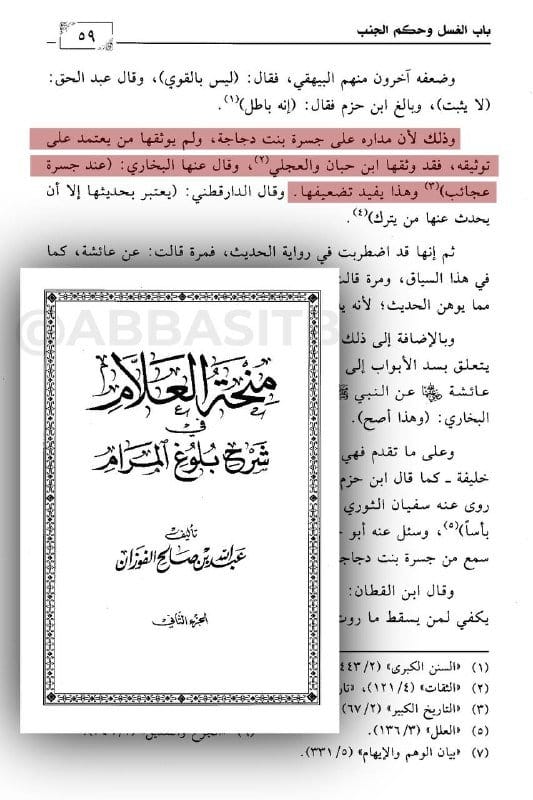 باب الغسل وحكم الجنب
٥٩
وضعفه آخرون منهم البيهقي، فقال: (ليس بالقوي)، وقال عبد الحق:
(لا يثبت)، وبالغ ابن حزم فقال: (إنه باطل)(١).
وذلك لأن مداره على جسرة بنت دجاجة، ولم يوثقها من يعتمد على
توثيقه، فقد وثقها ابن حبان والعجلي(٢)، وقال عنها البخاري: (عند جسرة
عجائب)(٣) وهذا يفيد تضعيفها. وقال الدارقطني: (يعتبر بحديثها إلا أن
يحدث عنها من يترك)(٤).
ثم إنها قد اضطربت في رواية الحديث، فمرة قالت: عن عائشة، كما
في هذا السياق، ومرة قالت
مما يوهن الحديث؛ لأنه
وبالإضافة إلى ذلك
يتعلق بسد الأبواب إلى
عائشة عن النبي
البخاري: (وهذا أصح).
وعلى ما تقدم فهي
خليفة ـ كما قال ابن حزم
روى عنه سفيان الثوري
بأساً)(٥)، وسئل عنه أبو
سمع من جسرة بنت دجاجة
وقال ابن القطان:
يكفي لمن يسقط ما روت
@ABBASITB
منحة العلام
في
شرح بلوغ المرام
تأليف
عبد الله بن صالح الفوزان
الجزء الثاني
(١) «السنن الكبرى» (٢/٤٤٣
(٢) «الثقات» (٤/١٢١)،
(٣) «التاريخ الكبير» (٢/٦٧)
(٥) «العلل» (٣/١٣٦).
(٧) «بيان الوهم والإيهام» (٥/٣٣١).